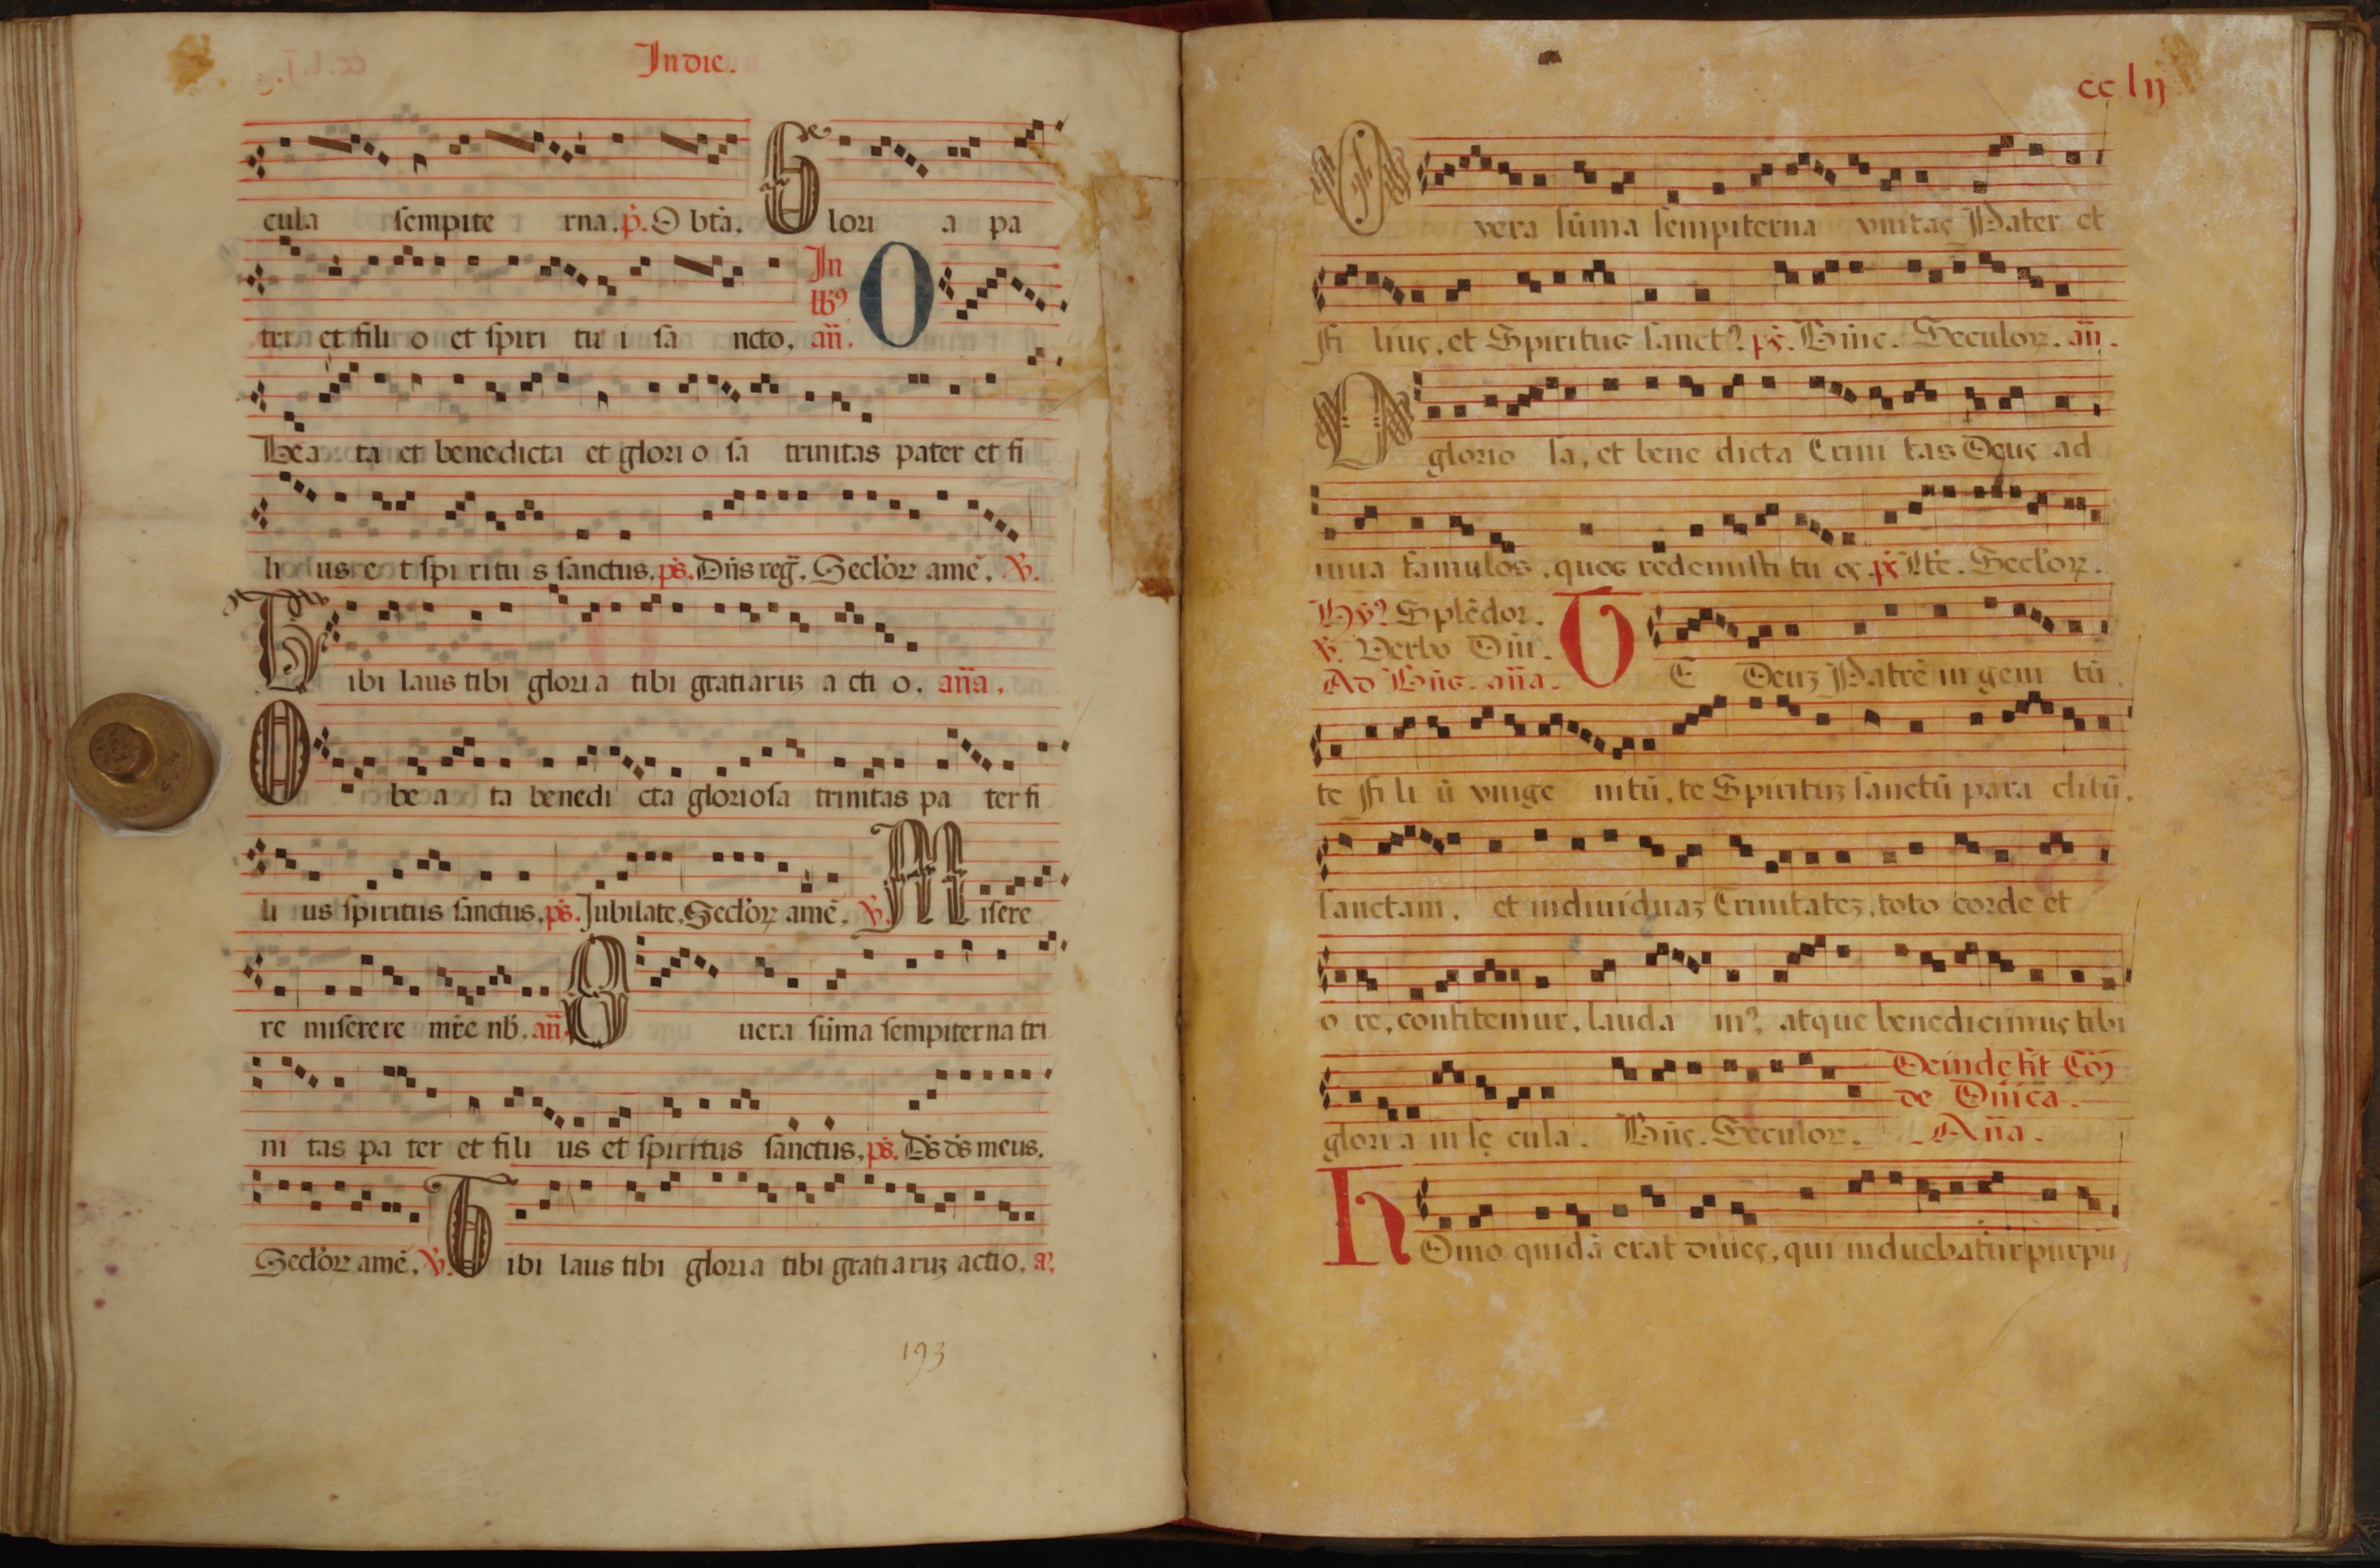 In die.
cula sempite rna. p̃. O btã. Glori a pa
In
lbꝰ
tri et fili o et spiri tu i sa ncto. añ. O
Bea ta et benedicta et glori o sa trinitas pater et fi
li us e t spi ritu s sanctus. ps̃. Dñs reg̃. Seclo᷑ꝝ amẽ. ℣.
Tibi laus tibi gloria tibi gratiaruꝫ a cti o. aña.
O be a ta benedi cta gloriosa trinitas pa ter fi
li us spiritus sanctus. ps̃. Jubilate. Seclo᷑ꝝ amẽ. ℣. Misere
re miserere mr̃e nb̃. añ. O uera sũma sempiterna tri
ni tas pa ter et fili us et spiritus sanctus. ps̃. Ds̃ ds̃ meus.
Seclo᷑ꝝ amẽ. ℣. Tibi laus tibi gloria tibi gratiaruꝫ actio. a᷑.
193
cc lij
O vera sũma sempiterna vnitas Pater et
Fi lius, et Spiritus sanctꝰ. ps̃. Bñc. Seculoꝝ. añ.
O glorio sa, et bene dicta Trini tas Deus ad
iuua famulos, quos redemisti tu os. ps̃. Lt̃e. Secloꝝ.
Hyꝰ Splẽdor.
℣. Verbo Dñi.
Ad Bñs. aña. TE Deuꝫ Patrẽ ingeni tũ.
te Fi li ũ vnige nitũ, te Spirituꝫ sanctũ para clitũ.
sanctam, et indiuiduaꝫ Trinitateꝫ, toto corde et
o re, confitemur, lauda mꝰ, atque benedicimus tibi
Deinde fit Cõm̃
de Dñica.
gloria in se cula. Bñs. Seculoꝝ. Aña.
HOmo quidã erat diues, qui induebatur purpu